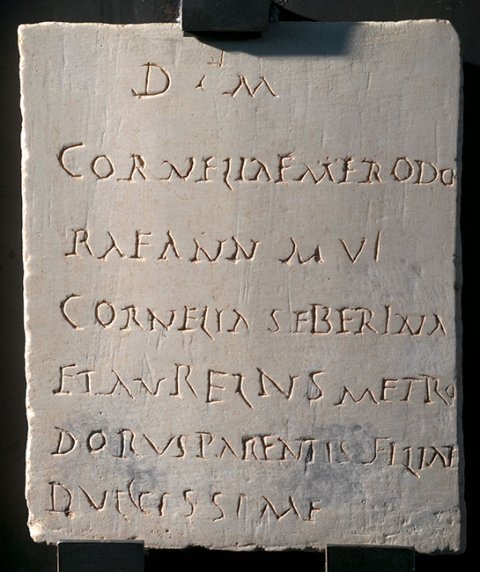 D M
CORNELIAEMERODO
RAEANN M VI
CORNELIA SEBERINA
ETAURELIUS METRO
DORUSPARENTIS FILIAE
DUECISSIME